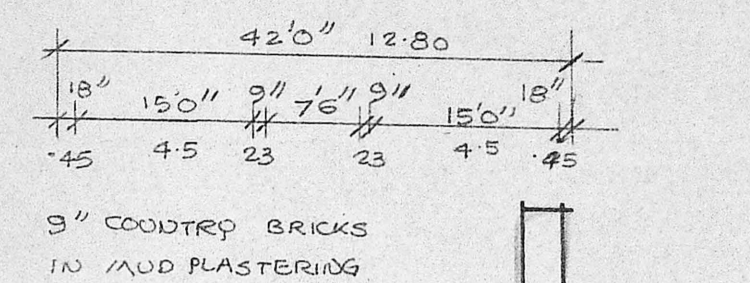 42'0" 12.80
18" 15'0" 9" 7'6" 9" 15'0" 18"
.45 4.5 23 23 4.5 .45
9" COUNTRY BRICKS
IN MUD PLASTERING